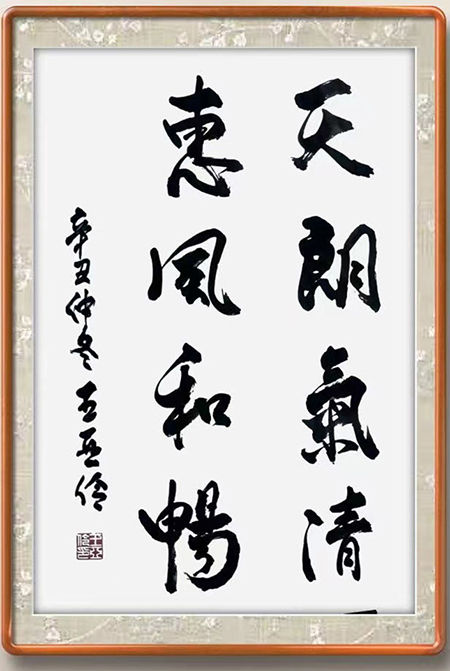 天朗氣清
惠風和暢
辛丑仲冬